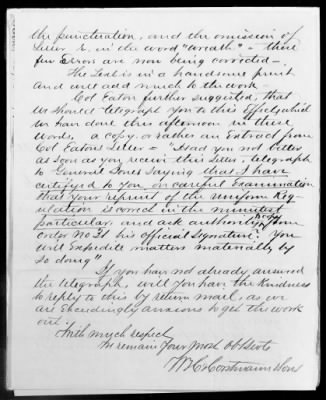 the punctuation, and the omission of
letter E. in the word "wreath" - these
few Errors are now being corrected -
The Seal is in a handsome print
and will add much to the work -
Col Eaton further suggested, that
we should telegraph you to this Effect, which
we have done this afternoon in these
words, a copy, or rather an Extract from
Col Eatons Letter = "Had you not better
as soon as you receive this letter, telegraph
to General Jones saying that I have
certified to you, on careful Examination
that your reprint of the Uniform Reg-
ulation is correct in the minutest
particular, and ask authority to
order No. 21 his official signature? You
will Expedite matters materially by
so doing"
If you have not already answered
the telegraph, will you have the kindness
to reply to this by return mail, as we
are Exceedingly anxious to get the work
out.
With much respect
We remain Your most obt Servts
W. H. Horstmann & Sons